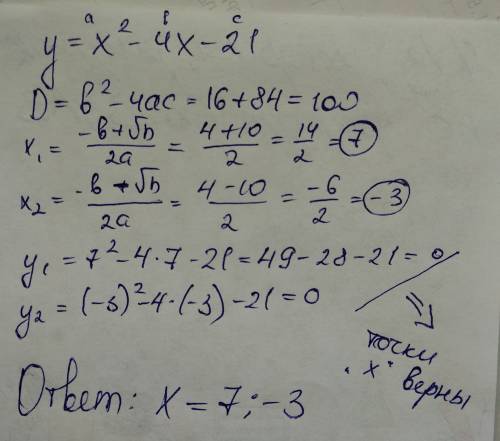 a в c
y = x² - 4x - 21
D = в² - 4ac = 16 + 84 = 100
x₁ = (-в + √D)/2a = (4 + 10)/2 = 14/2 = 7
x₂ = (-в - √D)/2a = (4 - 10)/2 = -6/2 = -3
y₁ = 7² - 4·7 - 21 = 49 - 28 - 21 = 0
y₂ = (-3)² - 4·(-3) - 21 = 0
⇒ точки
"x" верны
Ответ: x = 7; -3